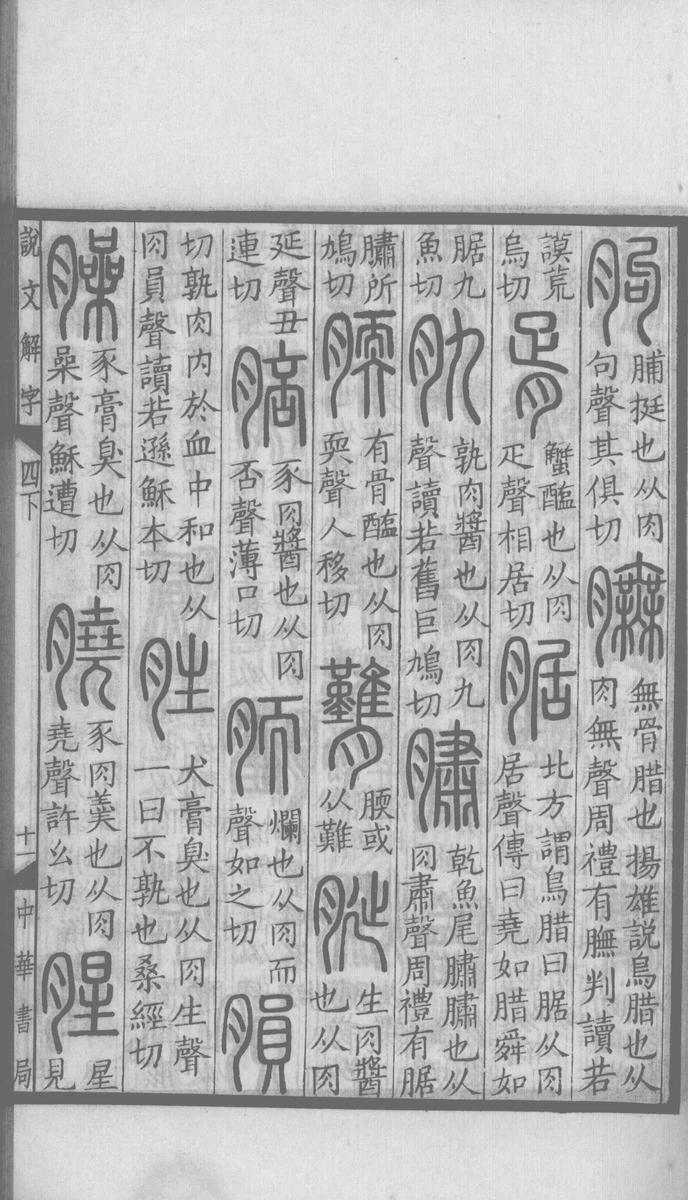 朐脯挺也从肉
句聲其俱切
膴無骨腊也揚雄説鳥腊也从
肉無聲周禮有膴判讀若
謨荒
烏切
胥蟹醢也从肉
疋聲相居切
腒北方謂鳥腊曰腒从肉
居聲傳曰堯如腊舜如
腒九
魚切
肍孰肉醬也从肉九
聲讀若舊巨鳩切
䐹乾魚尾䐹䐹也从
肉肅聲周禮有腒
䐹所
鳩切
腝有骨醢也从肉
耎聲人移切
腝或
从難
脠生肉醬
也从肉
延聲丑
連切
䏽豕肉醬也从肉
否聲薄口切
胹爛也从肉而
聲如之切
䐣
切孰肉内於血中和也从
肉員聲讀若遜穌本切
胜犬膏臭也从肉生聲
一曰不孰也桑經切
臊豕膏臭也从肉
喿聲穌遭切
膮豕肉羹也从肉
堯聲許幺切
腥星
見
説文解字
四下
十一
中華書局